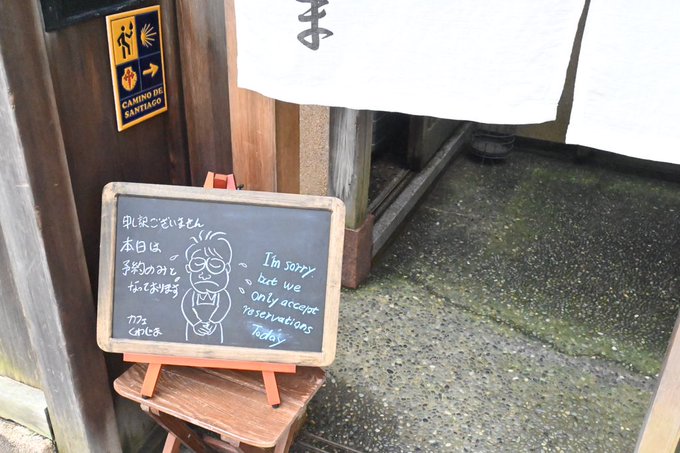 ま
CAMINO DE
SANTIAGO
申し訳ございません
本日は
予約のみと
なっております
カフェ
くわじま
I'm sorry
but we
only accept
reservations
Today